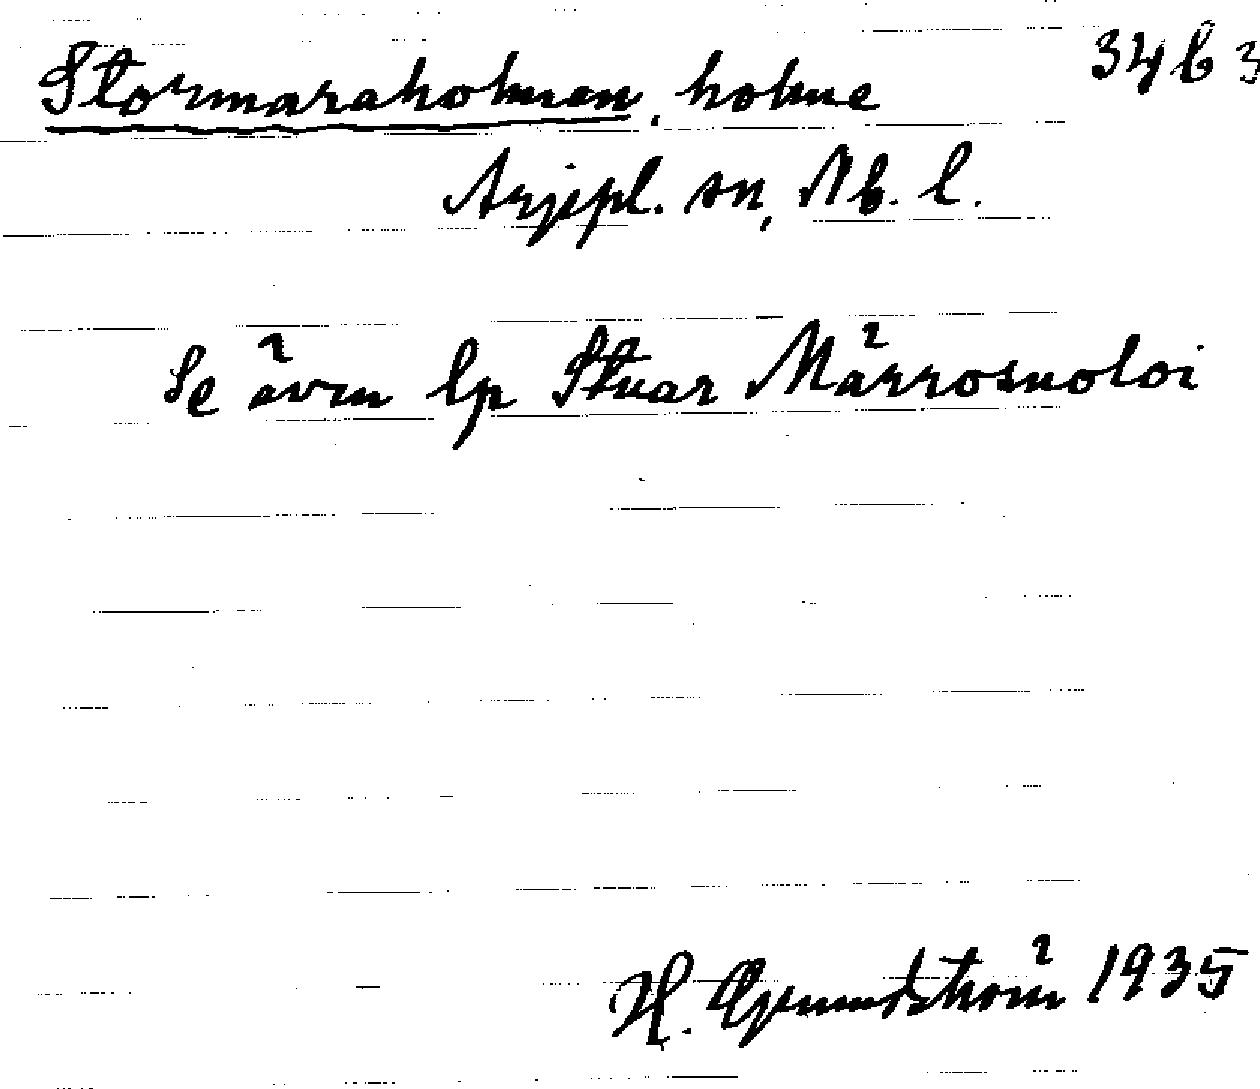 Stormaraholmen, holme 34b3
Arjepl. sn, Nb. l.
Se även lp Stuar Märrosuoloi
H. Grundström 1935